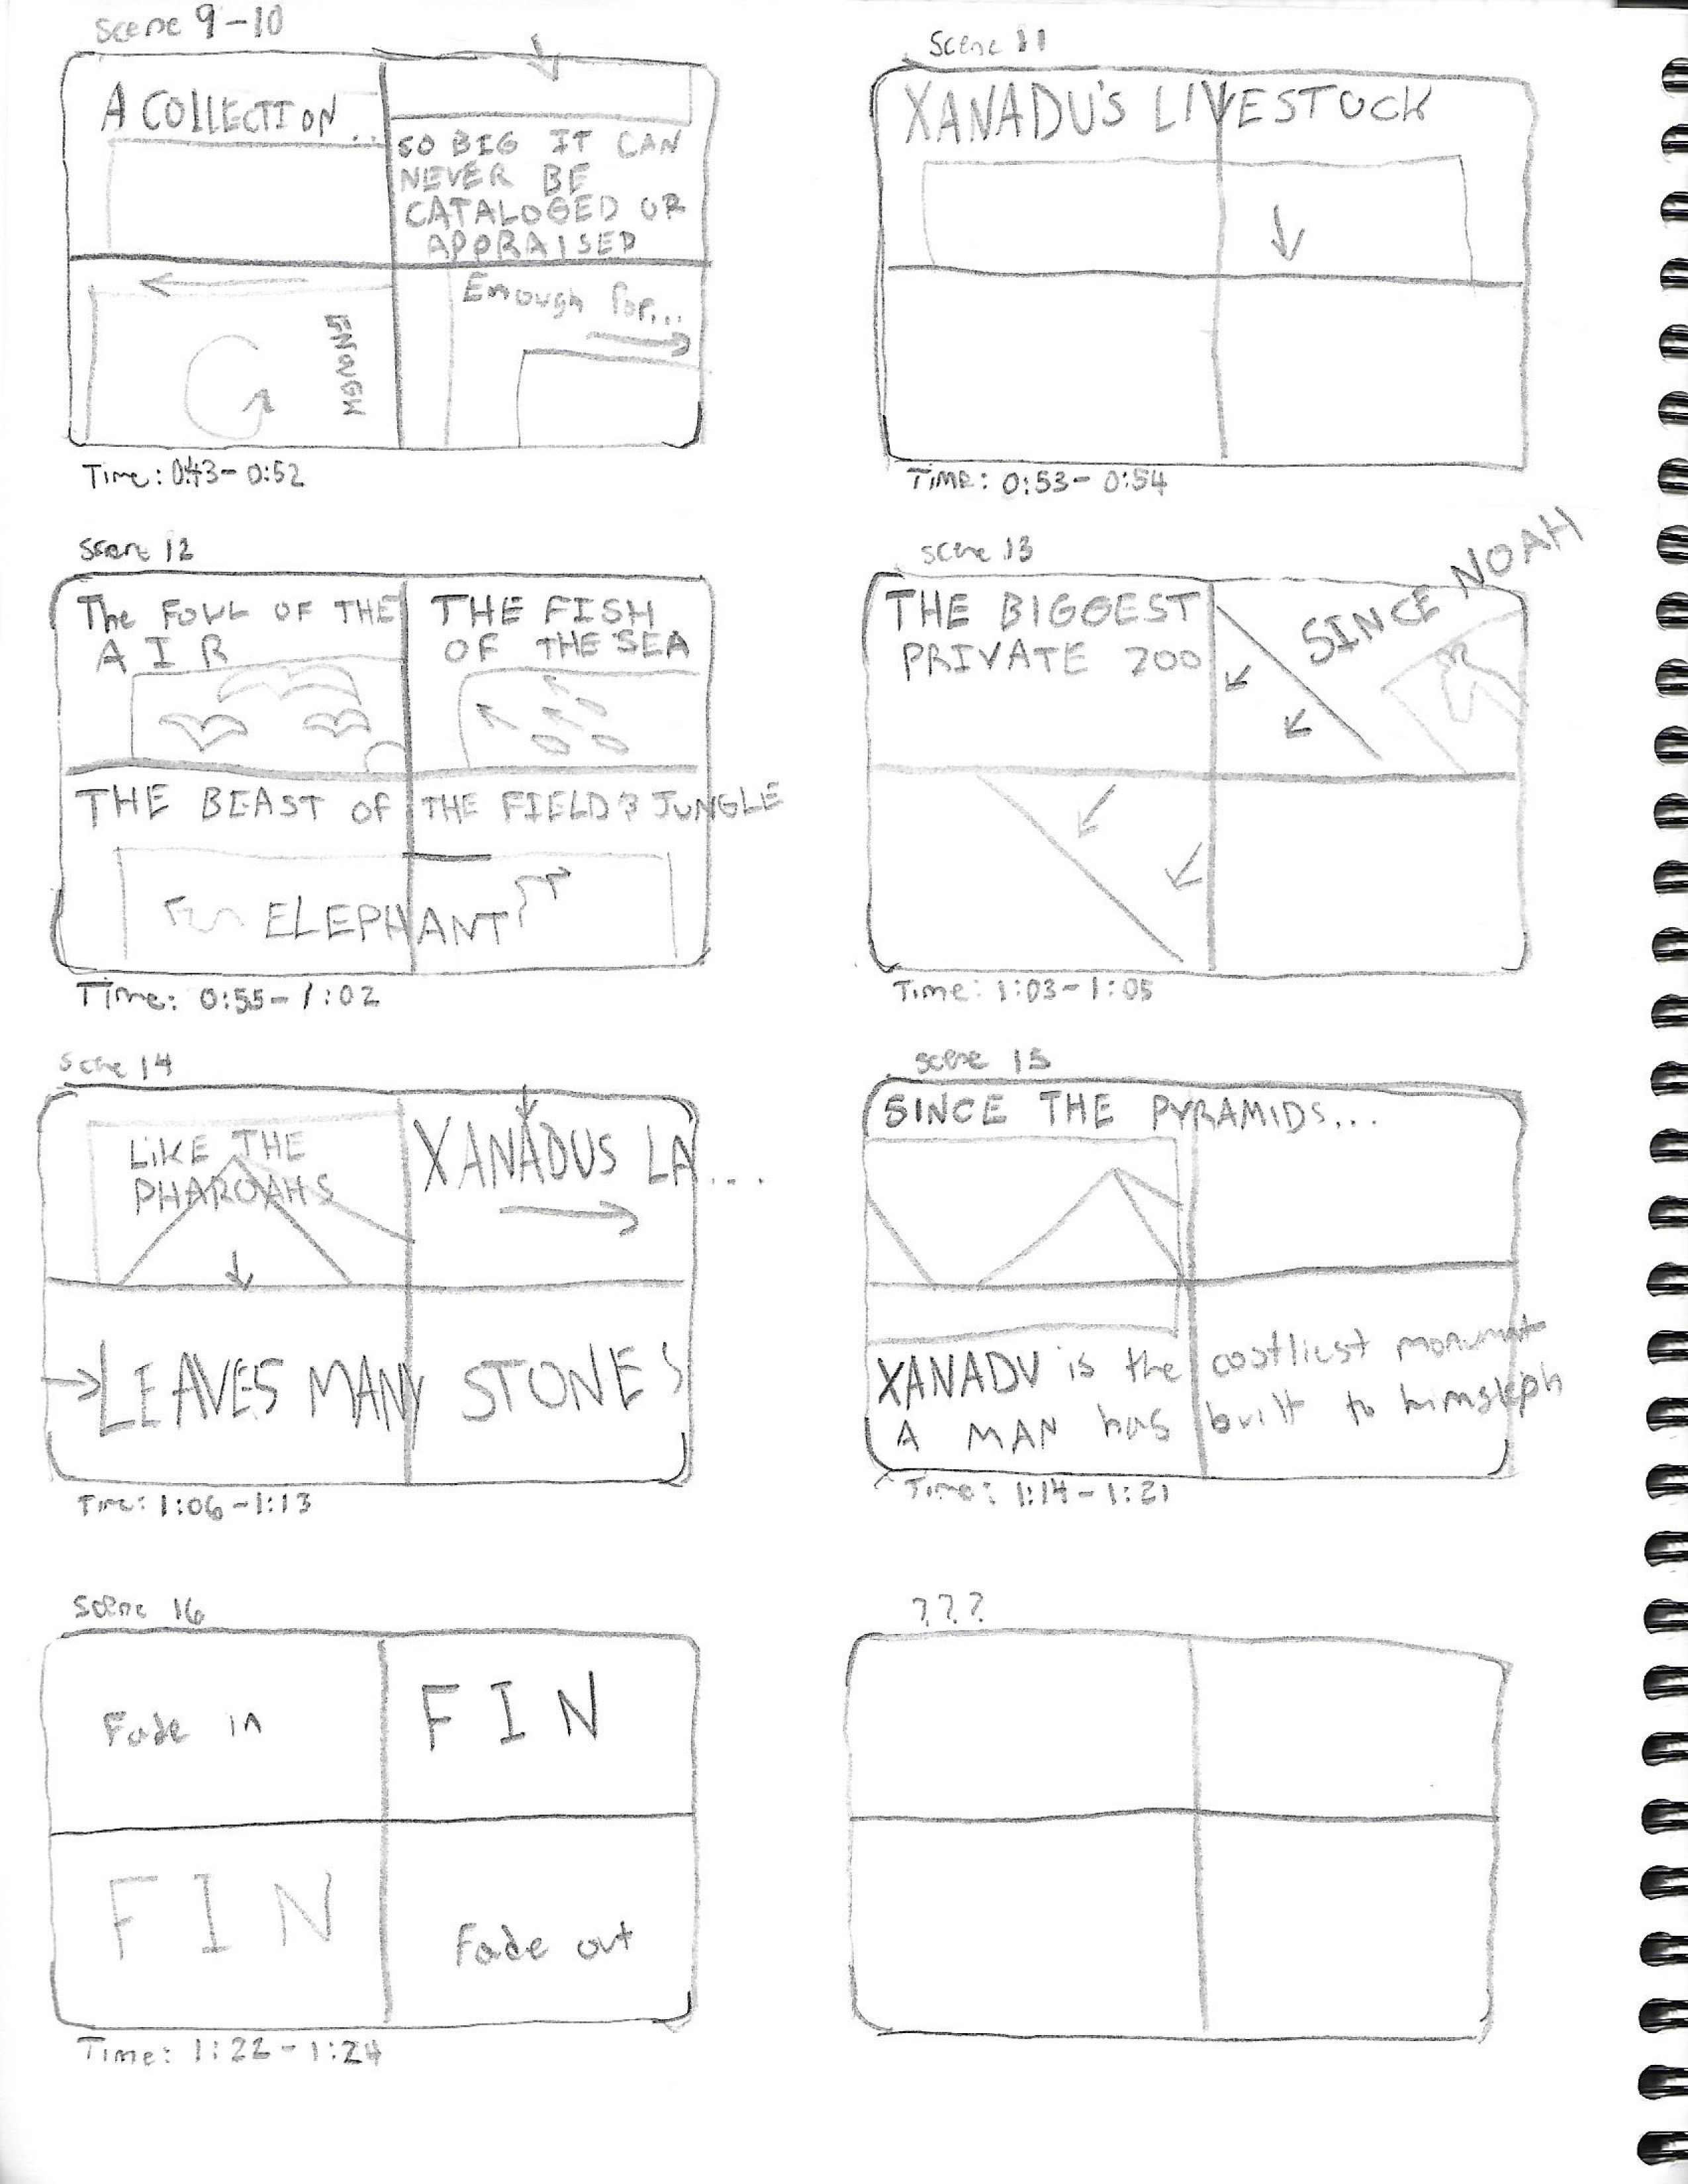 Scene 9-10
A COLLECTION...
SO BIG IT CAN
NEVER BE
CATALOGED OR
APPRAISED
ENOUGH
Enough for...
Time: 0:43- 0:52
Scene 11
XANADU'S LIVESTOCK
Time: 0:53- 0:54
Scene 12
The FOWL OF THE
AIR
THE FISH
OF THE SEA
THE BEAST OF THE FIELD & JUNGLE
ELEPHANT
Time: 0:55-1:02
Scene 13
THE BIGGEST
PRIVATE ZOO
SINCE NOAH
Time: 1:03-1:05
Scene 14
LIKE THE
PHAROAHS
XANADUS LA...
LEAVES MANY STONES
Time: 1:06-1:13
Scene 15
SINCE THE PYRAMIDS...
XANADU is the costliest monument
A MAN has built to himself
Time: 1:14-1:21
Scene 16
Fade in
FIN
FIN
Fade out
Time: 1:22-1:24
???